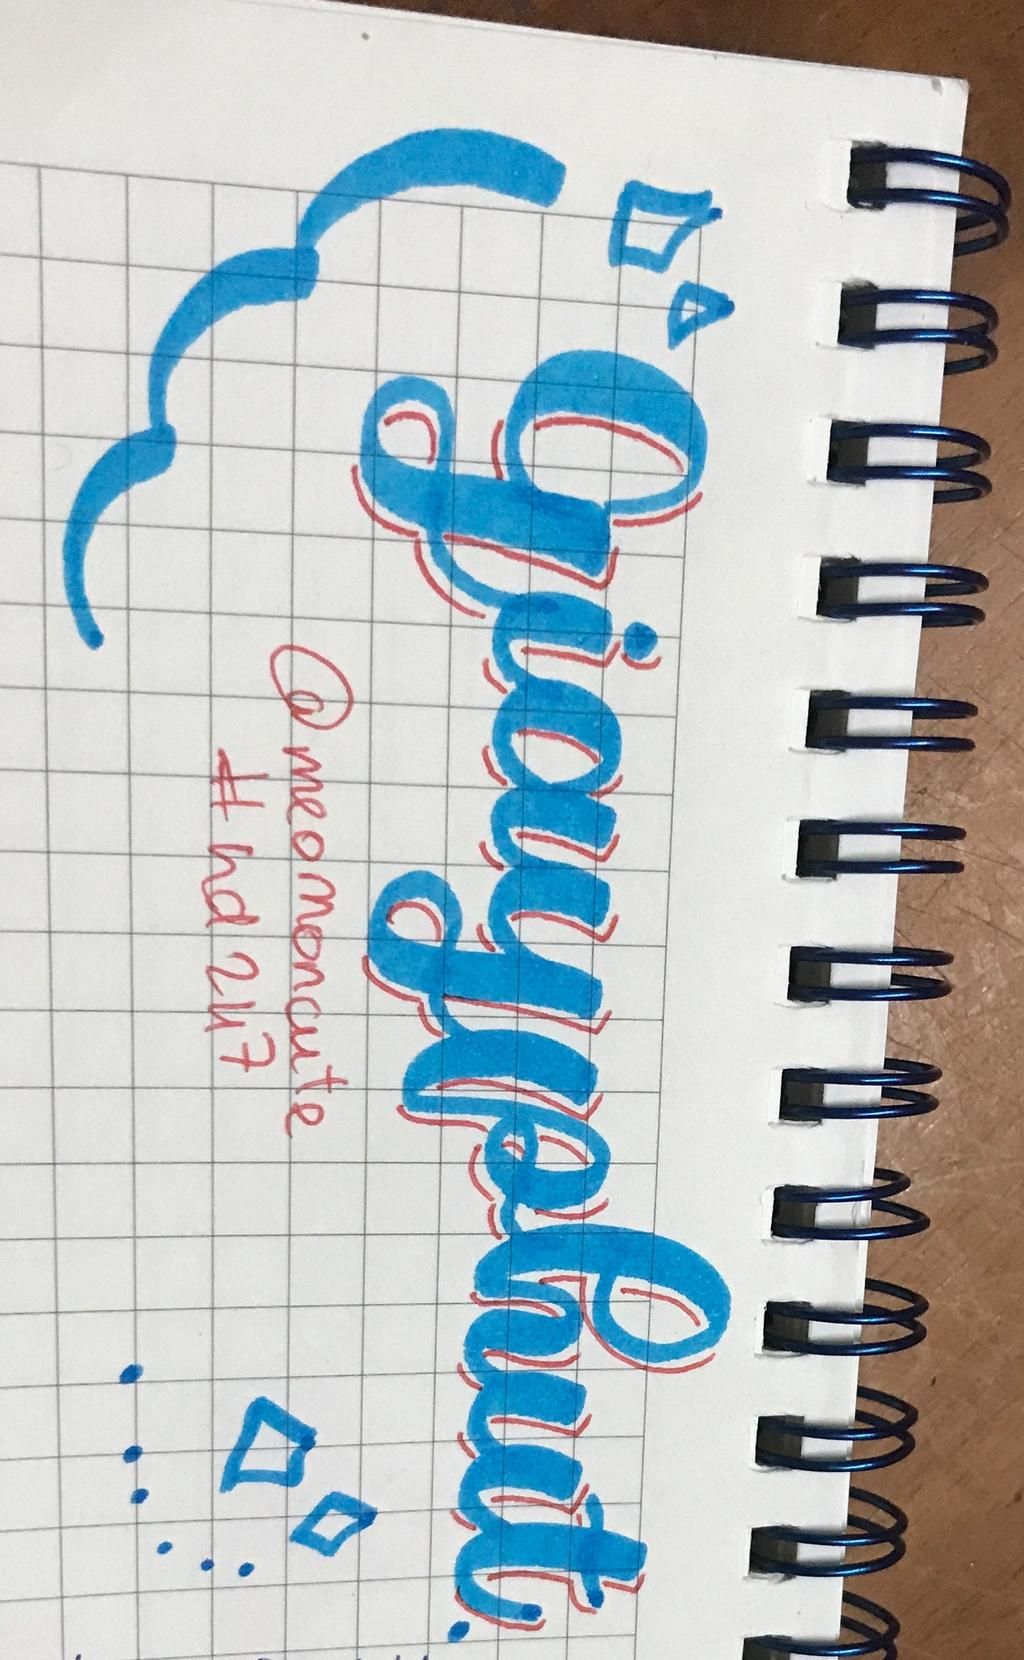 giayphut
@meomoncute
#hd247